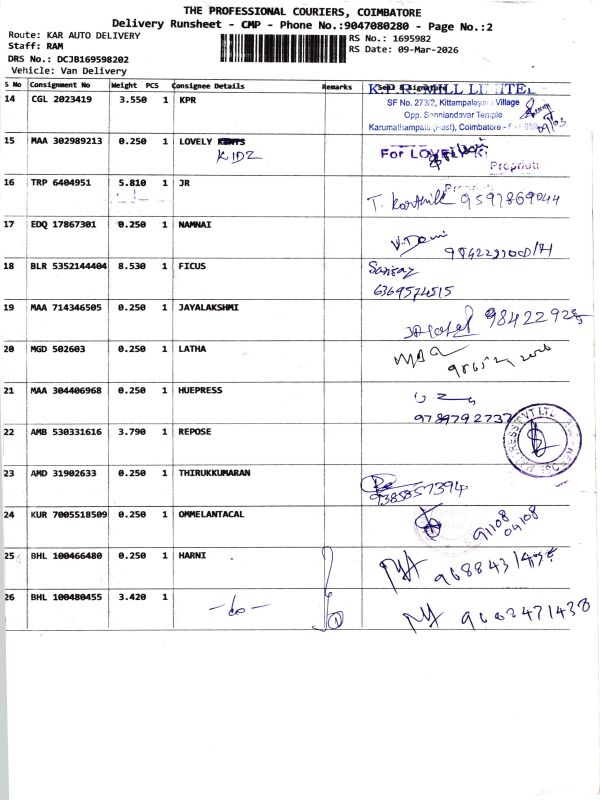 THE PROFESSIONAL COURIERS, COIMBATORE
Delivery Runsheet - CMP - Phone No.:9047080280 - Page No.:2
Route: KAR AUTO DELIVERY
RS No.: 1695982
Staff: RAM
RS Date: 09-Mar-2026
DRS No.: DCJB169598202
Vehicle: Van Delivery
S No Consignment No Weight PCS Consignee Details Remarks Seal & Signature
14 CGL 2023419 3.550 1 KPR
K.P.R. MILL LIMITED
SF No. 273/2, Kittampalayam Village
Opp. Senniandavar Temple
Karumathampatti (Post), Coimbatore -
09/03
15 MAA 302989213 0.250 1 LOVELY
KIDZ
For LOVELY KI
Propriet
16 TRP 6404951 5.810 1 JR
T. Karthik 9597869044
17 EDQ 17867301 0.250 1 NAMNAI
V. Devi
18 BLR 5352144404 8.530 1 FICUS
Sanjay
6369574515
19 MAA 714346505 0.250 1 JAYALAKSHMI
98422925
20 MGD 502603 0.250 1 LATHA
21 MAA 304406968 0.250 1 HUEPRESS
9789792737
22 AMB 530331616 3.790 1 REPOSE
23 AMD 31902633 0.250 1 THIRUKKUMARAN
9385857394
24 KUR 7005518509 0.250 1 OMMELANTACAL
91108
04108
25 BHL 100466480 0.250 1 HARNI
26 BHL 100480455 3.420 1 -do-
1